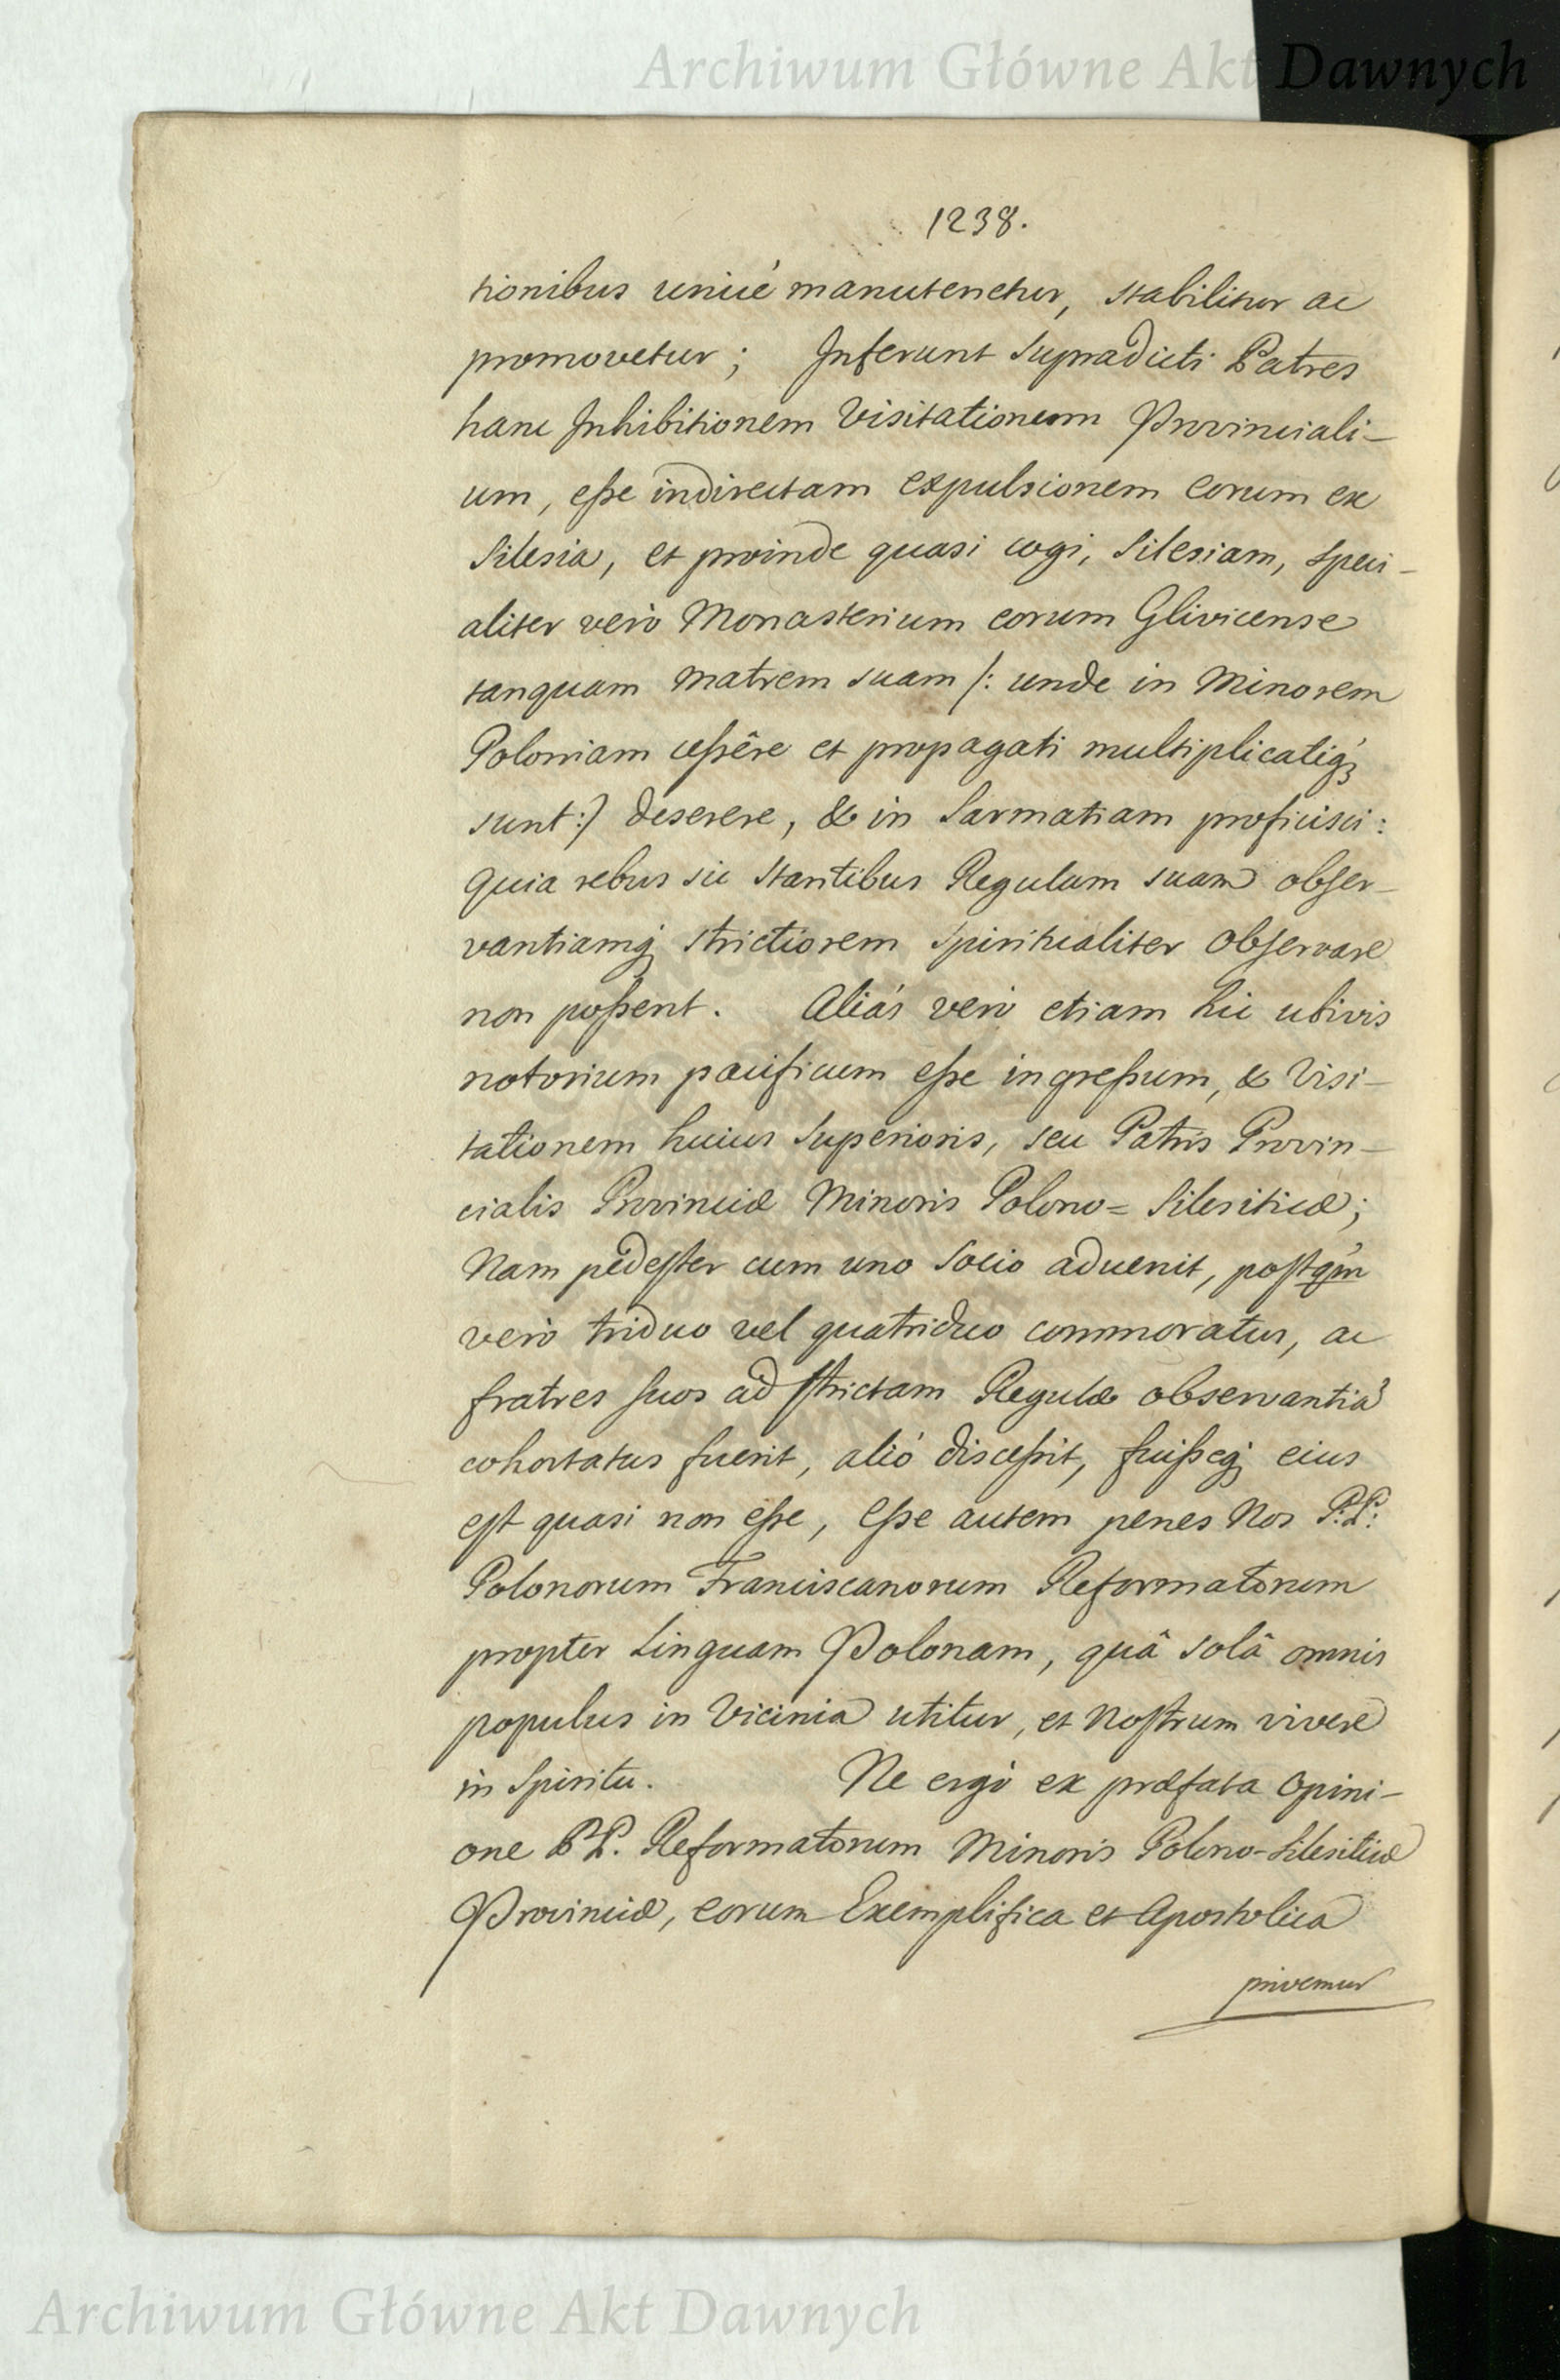 Archiwum Główne Akt Dawnych
1238.
tionibus unicé manutenetur, stabilitur ac
promovetur; Inferunt Supradicti Patres
hanc Inhibitionem Visitationem Provinciali-
um, eſse indirectam expulsionem eorum ex
Silesia, et proinde quasi cogi, Silesiam, speci-
aliter verò Monasterium eorum Glivicense
tanquam Matrem suam /: unde in Minorem
Poloniam ceſsêre et propagati multiplicatiq́ꝫ
sunt:/ deserere, & in Sarmatiam proficisci:
quia rebus sic stantibus Regulam suam obser-
vantiamq́ strictiorem Spiritualiter observare
non poſsent. Aliás verò etiam hic ubivis
notorium pacificum eſse ingreſsum, & Visi-
tationem huius Superioris, seu Patris Provin-
cialis Provinciæ Minoris Polono= Silesiticæ;
Nam pedeſter cum uno Socio advenit, poſtq́m
verò triduo vel quatriduo commoratus, ac
fratres suos ad ſtrictam Regulæ observantiã
cohortatus fuerit, alió disceſsit, fuiſseq́ eius
eſt quasi non eſse, Eſse autem penes Nos P.P:
Polonorum Franciscanorum Reformatorum
propter Linguam Polonam, quâ solâ omnis
populus in Vicinia utitur, et Noſtrum vivere
in Spiritu. Ne ergò ex præfata Opini-
one P.P. Reformatorum Minoris Polono-Silesiticæ
Provinciæ, eorum Exemplifica et Apostolica
privemur
Archiwum Główne Akt Dawnych